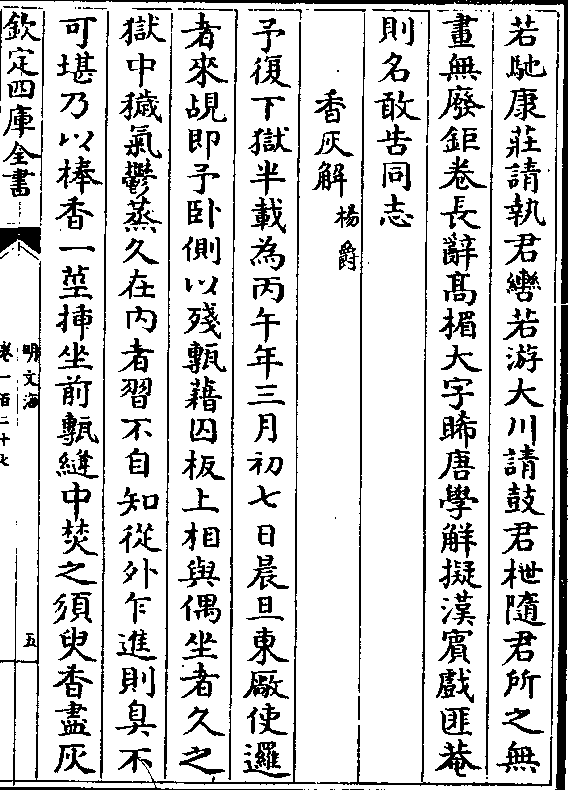 若馳康莊請執君轡若游大川請鼓君枻隨君所之無
晝無廢鉅卷長辭髙楣大字睎唐學解擬漢賓戲匪菴
則名敢告同志
香灰解楊爵
予復下獄半載為丙午年三月初七日晨旦東厰使邏
者來覘即予卧側以殘甎藉囚板上相與偶坐者久之
獄中穢氣鬱蒸久在内者習不自知從外乍進則臭不
可堪乃以棒香一莖挿坐前甎縫中焚之須臾香盡灰
欽定四庫全書
明文海
卷一百二十七
五